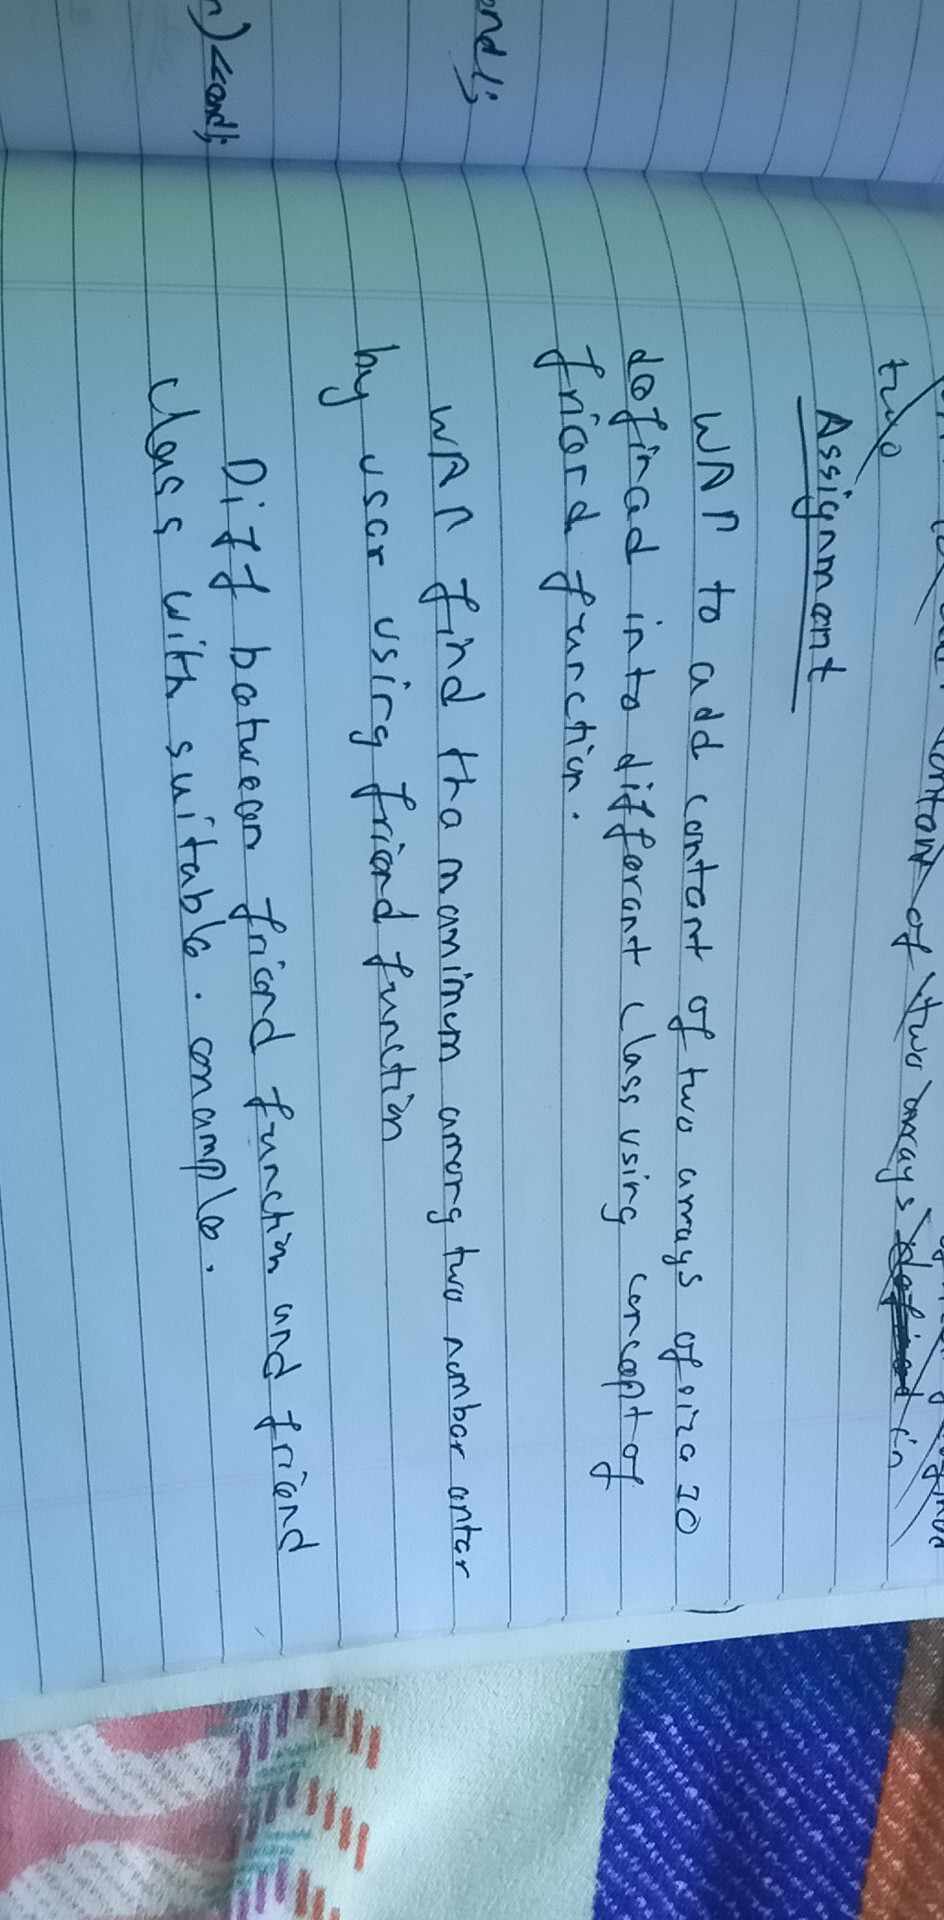 of two arrays in
two
Assignment
WAP to add content of two arrays of size 10
defined into different class using concept of
friend function.
endl;
WAP find the maximum among two number enter
by user using friend function
Diff between friend function and friend
) <<endl;
class with suitable . example.